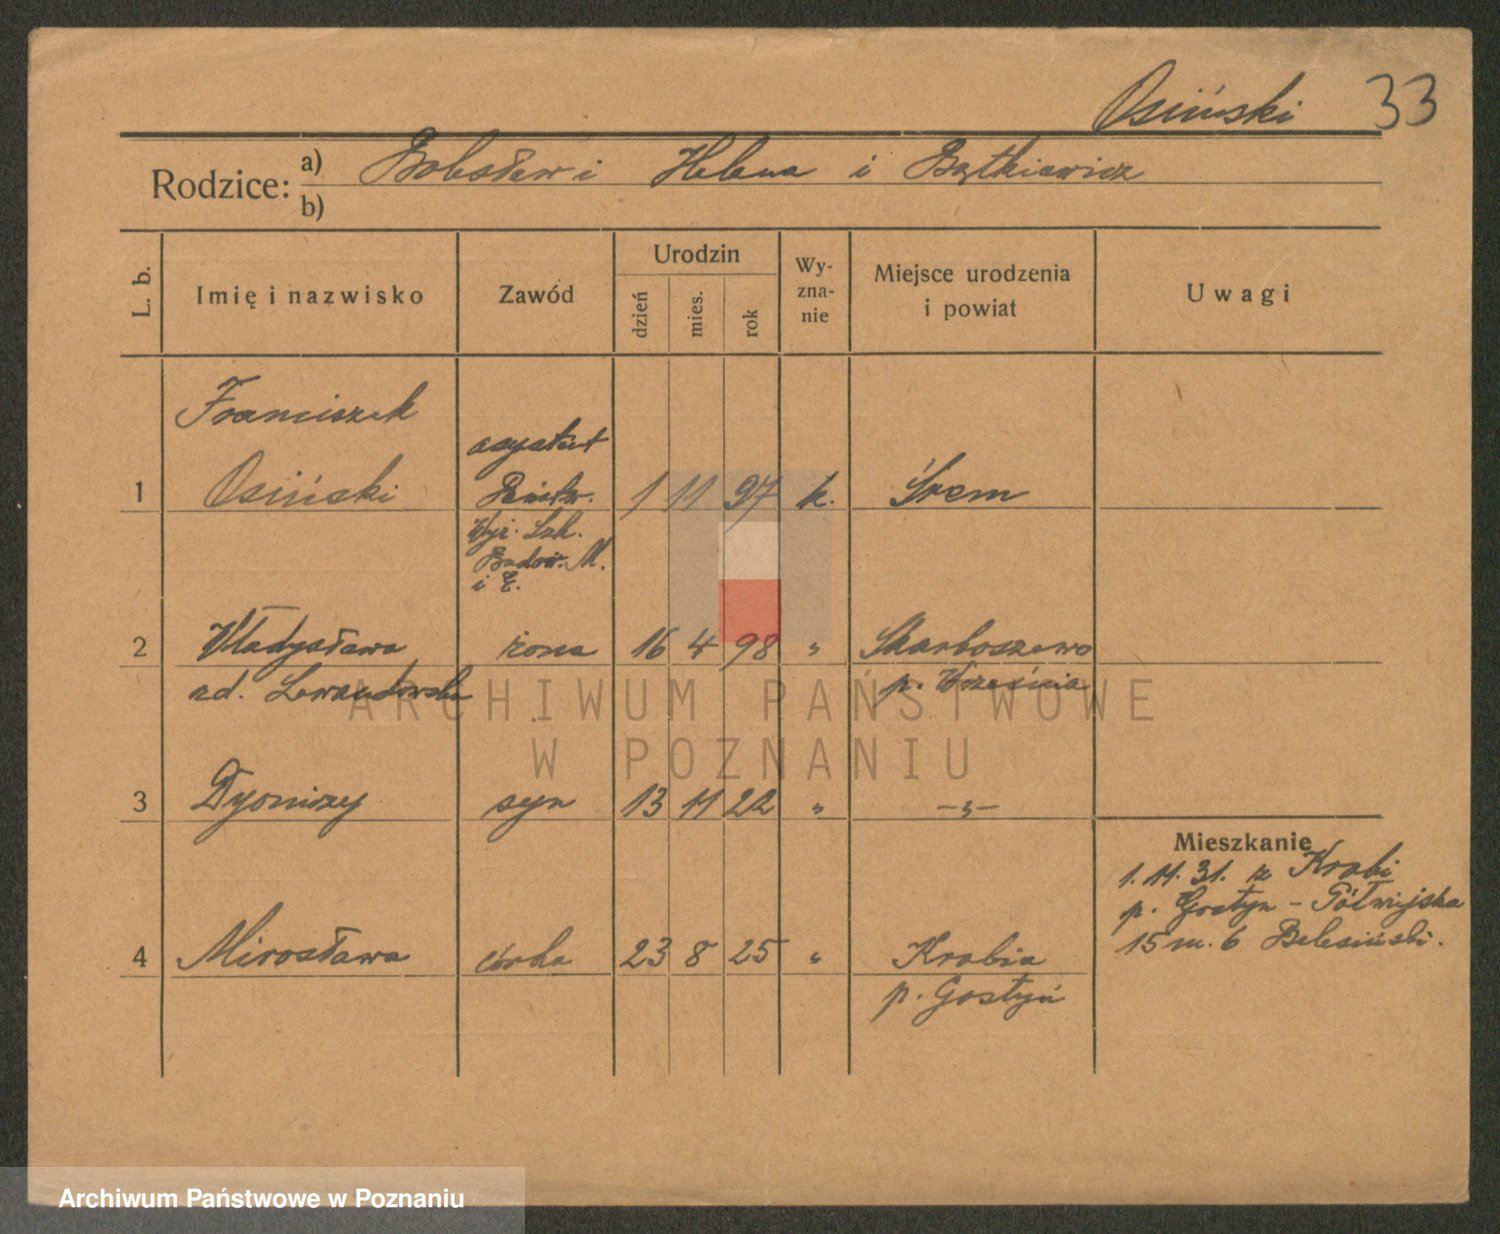 Osiński 33
Rodzice: a) Bolesław i Helena i Bątkiewicz
b)
L. b. Imię i nazwisko Zawód Urodzin dzień mies. rok Wy-zna-nie Miejsce urodzenia i powiat Uwagi
Franciszek
asystent
1 Osiński Państw. 1 11 97 k. Śrem
Wyż. Szk.
Budow. M.
i E.
2 Władysława żona 16 4 98 " Skarboszewo
zd. Lewandowska p. Września
ARCHIWUM PAŃSTWOWE
W POZNANIU
3 Dyonizy syn 13 11 22 " -"-
Mieszkanie
1.11.31. z Krobi
p. Gostyn - Półwiejska
4 Mirosława córka 23 8 25 " Krobia 15 m. 6
p. Gostyń
Archiwum Państwowe w Poznaniu